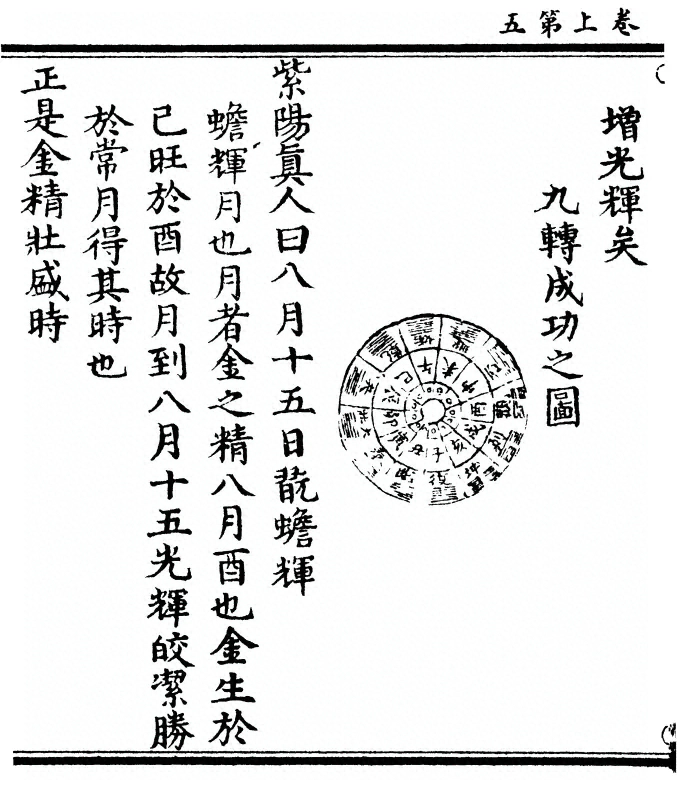 卷上第五
增光輝矣
九轉成功之圖
乾
姤
午
未
酉
戌
亥
子
丑
巳
復
坤
剝
觀
夬
紫陽眞人曰八月十五日翫蟾輝
蟾輝月也月者金之精八月酉也金生於
巳旺於酉故月到八月十五光輝皎潔勝
於常月得其時也
正是金精壯盛時